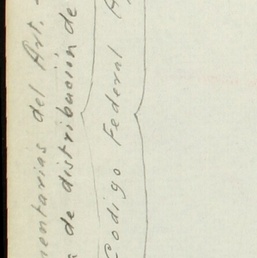 mentarias del Art.
de distribución de
Codigo Federal